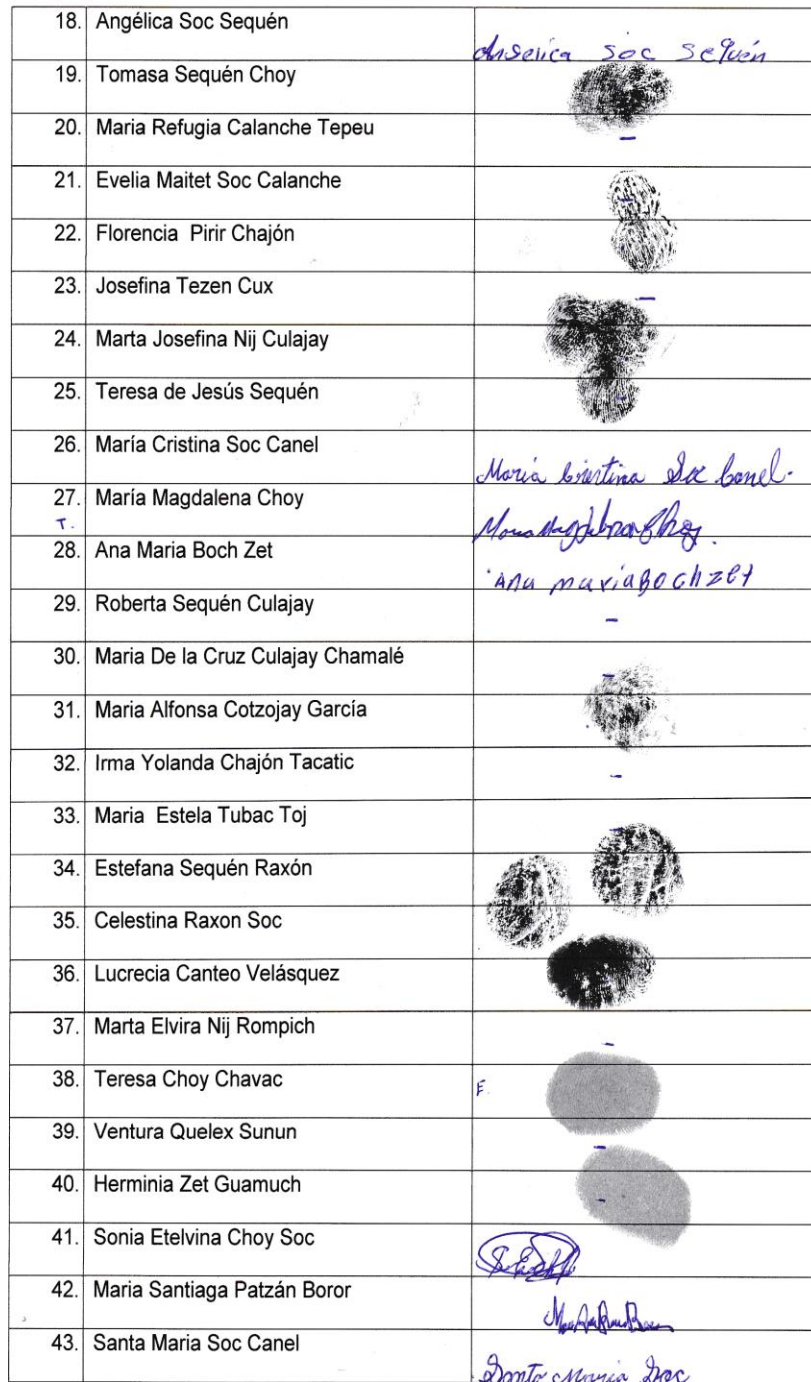 18. Angélica Soc Sequén
Anserica Soc Sequén
19. Tomasa Sequén Choy
20. Maria Refugia Calanche Tepeu
21. Evelia Maitet Soc Calanche
22. Florencia Pirir Chajón
23. Josefina Tezen Cux
24. Marta Josefina Nij Culajay
25. Teresa de Jesús Sequén
26. María Cristina Soc Canel
Maria Cristina Soc Canel.
27. María Magdalena Choy
T.
Maria Magdalena Choy.
28. Ana Maria Boch Zet
Ana maria Boch zet
29. Roberta Sequén Culajay
30. Maria De la Cruz Culajay Chamalé
31. Maria Alfonsa Cotzojay García
32. Irma Yolanda Chajón Tacatic
33. Maria Estela Tubac Toj
34. Estefana Sequén Raxón
35. Celestina Raxon Soc
36. Lucrecia Canteo Velásquez
37. Marta Elvira Nij Rompich
38. Teresa Choy Chavac
F.
39. Ventura Quelex Sunun
40. Herminia Zet Guamuch
41. Sonia Etelvina Choy Soc
42. Maria Santiaga Patzán Boror
43. Santa Maria Soc Canel
Santa Maria Soc